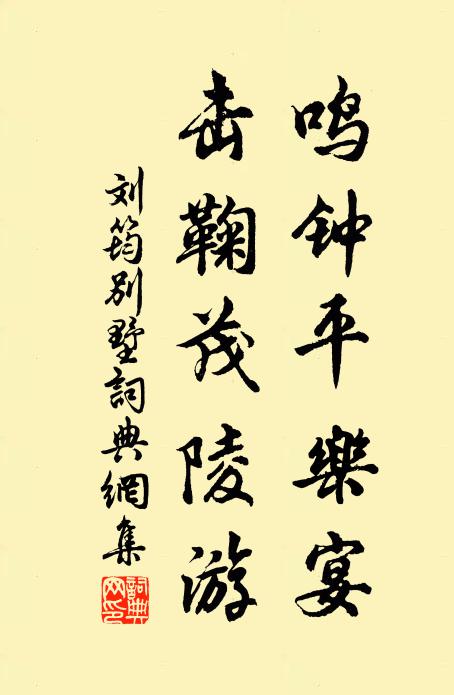 鸣钟平樂宴
击鞠茂陵游
刘筠别墅詞典網集
詞典网印